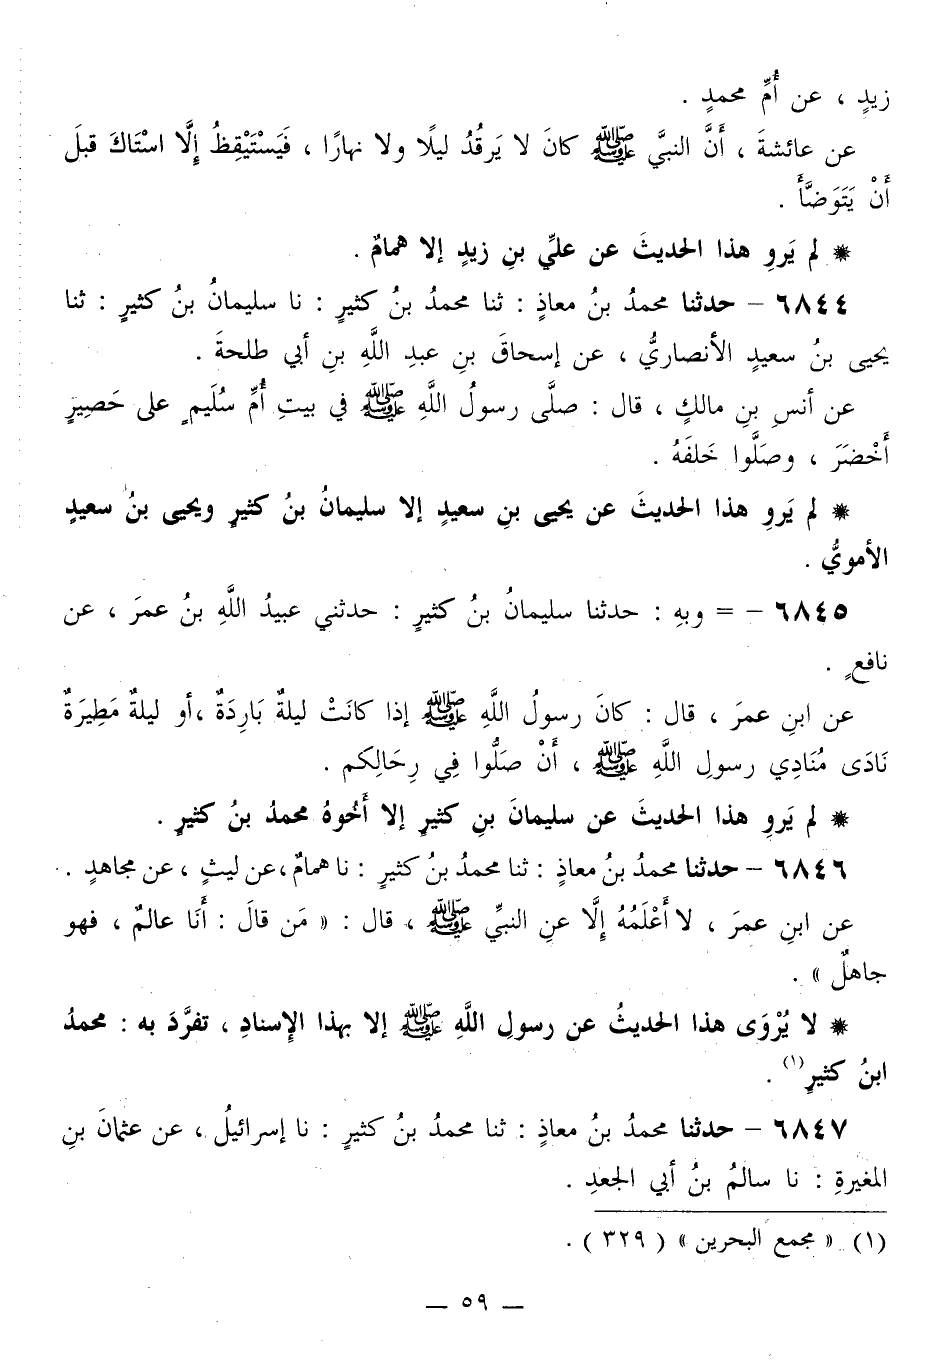 زيدٍ ، عن أُمِّ محمدٍ .
عن عائشةَ ، أَنَّ النبيَّ ﷺ كانَ لا يَرقُدُ ليلًا ولا نهارًا ، فَيَسْتَيْقِظُ إِلَّا اسْتَاكَ قبلَ
أَنْ يَتَوَضَّأَ .
* لم يَروِ هذا الحديثَ عن عليِّ بنِ زيدٍ إلا همامٌ .
٦٨٤٤ – حدثنا محمدُ بنُ معاذٍ : ثنا محمدُ بنُ كثيرٍ : نا سليمانُ بنُ كثيرٍ : ثنا
يحيى بنُ سعيدٍ الأنصاريُّ ، عن إسحاقَ بنِ عبدِ اللَّهِ بنِ أبي طلحةَ .
عن أنسِ بنِ مالكٍ ، قال : صلَّى رسولُ اللَّهِ ﷺ في بيتِ أُمِّ سُلَيمٍ على حَصِيرٍ
أَخْضَرَ ، وصَلَّوا خَلفَهُ .
* لم يَروِ هذا الحديثَ عن يحيى بنِ سعيدٍ إلا سليمانُ بنُ كثيرٍ ويحيى بنُ سعيدٍ
الأمويُّ .
٦٨٤٥ – = وبهِ : حدثنا سليمانُ بنُ كثيرٍ : حدثني عبيدُ اللَّهِ بنُ عمرَ ، عن
نافعٍ .
عن ابنِ عمرَ ، قال : كانَ رسولُ اللَّهِ ﷺ إذا كانَتْ ليلةٌ بَارِدَةٌ ،أو ليلةٌ مَطِيرَةٌ
نَادَى مُنَادِي رسولِ اللَّهِ ﷺ ، أَنْ صَلُّوا فِي رِحَالِكم .
* لم يَروِ هذا الحديثَ عن سليمانَ بنِ كثيرٍ إلا أَخُوهُ محمدُ بنُ كثيرٍ .
٦٨٤٦ – حدثنا محمدُ بنُ معاذٍ : ثنا محمدُ بنُ كثيرٍ : نا همامٌ ،عن ليثٍ ، عن مجاهدٍ .
عن ابنِ عمرَ ، لا أَعْلَمُهُ إِلَّا عنِ النبيِّ ﷺ ، قال : « مَن قالَ : أَنَا عالمٌ ، فهو
جاهلٌ » .
* لا يُرْوَى هذا الحديثُ عن رسولِ اللَّهِ ﷺ إلا بهذا الإِسنادِ ، تفرَّدَ به : محمدُ
ابنُ كثيرٍ(١) .
٦٨٤٧ – حدثنا محمدُ بنُ معاذٍ : ثنا محمدُ بنُ كثيرٍ : نا إسرائيلُ ، عن عثمانَ بنِ
المغيرةِ : نا سالمُ بنُ أبي الجعدِ .
(١) « مجمع البحرين » ( ٣٢٩ ) .
– ٥٩ –